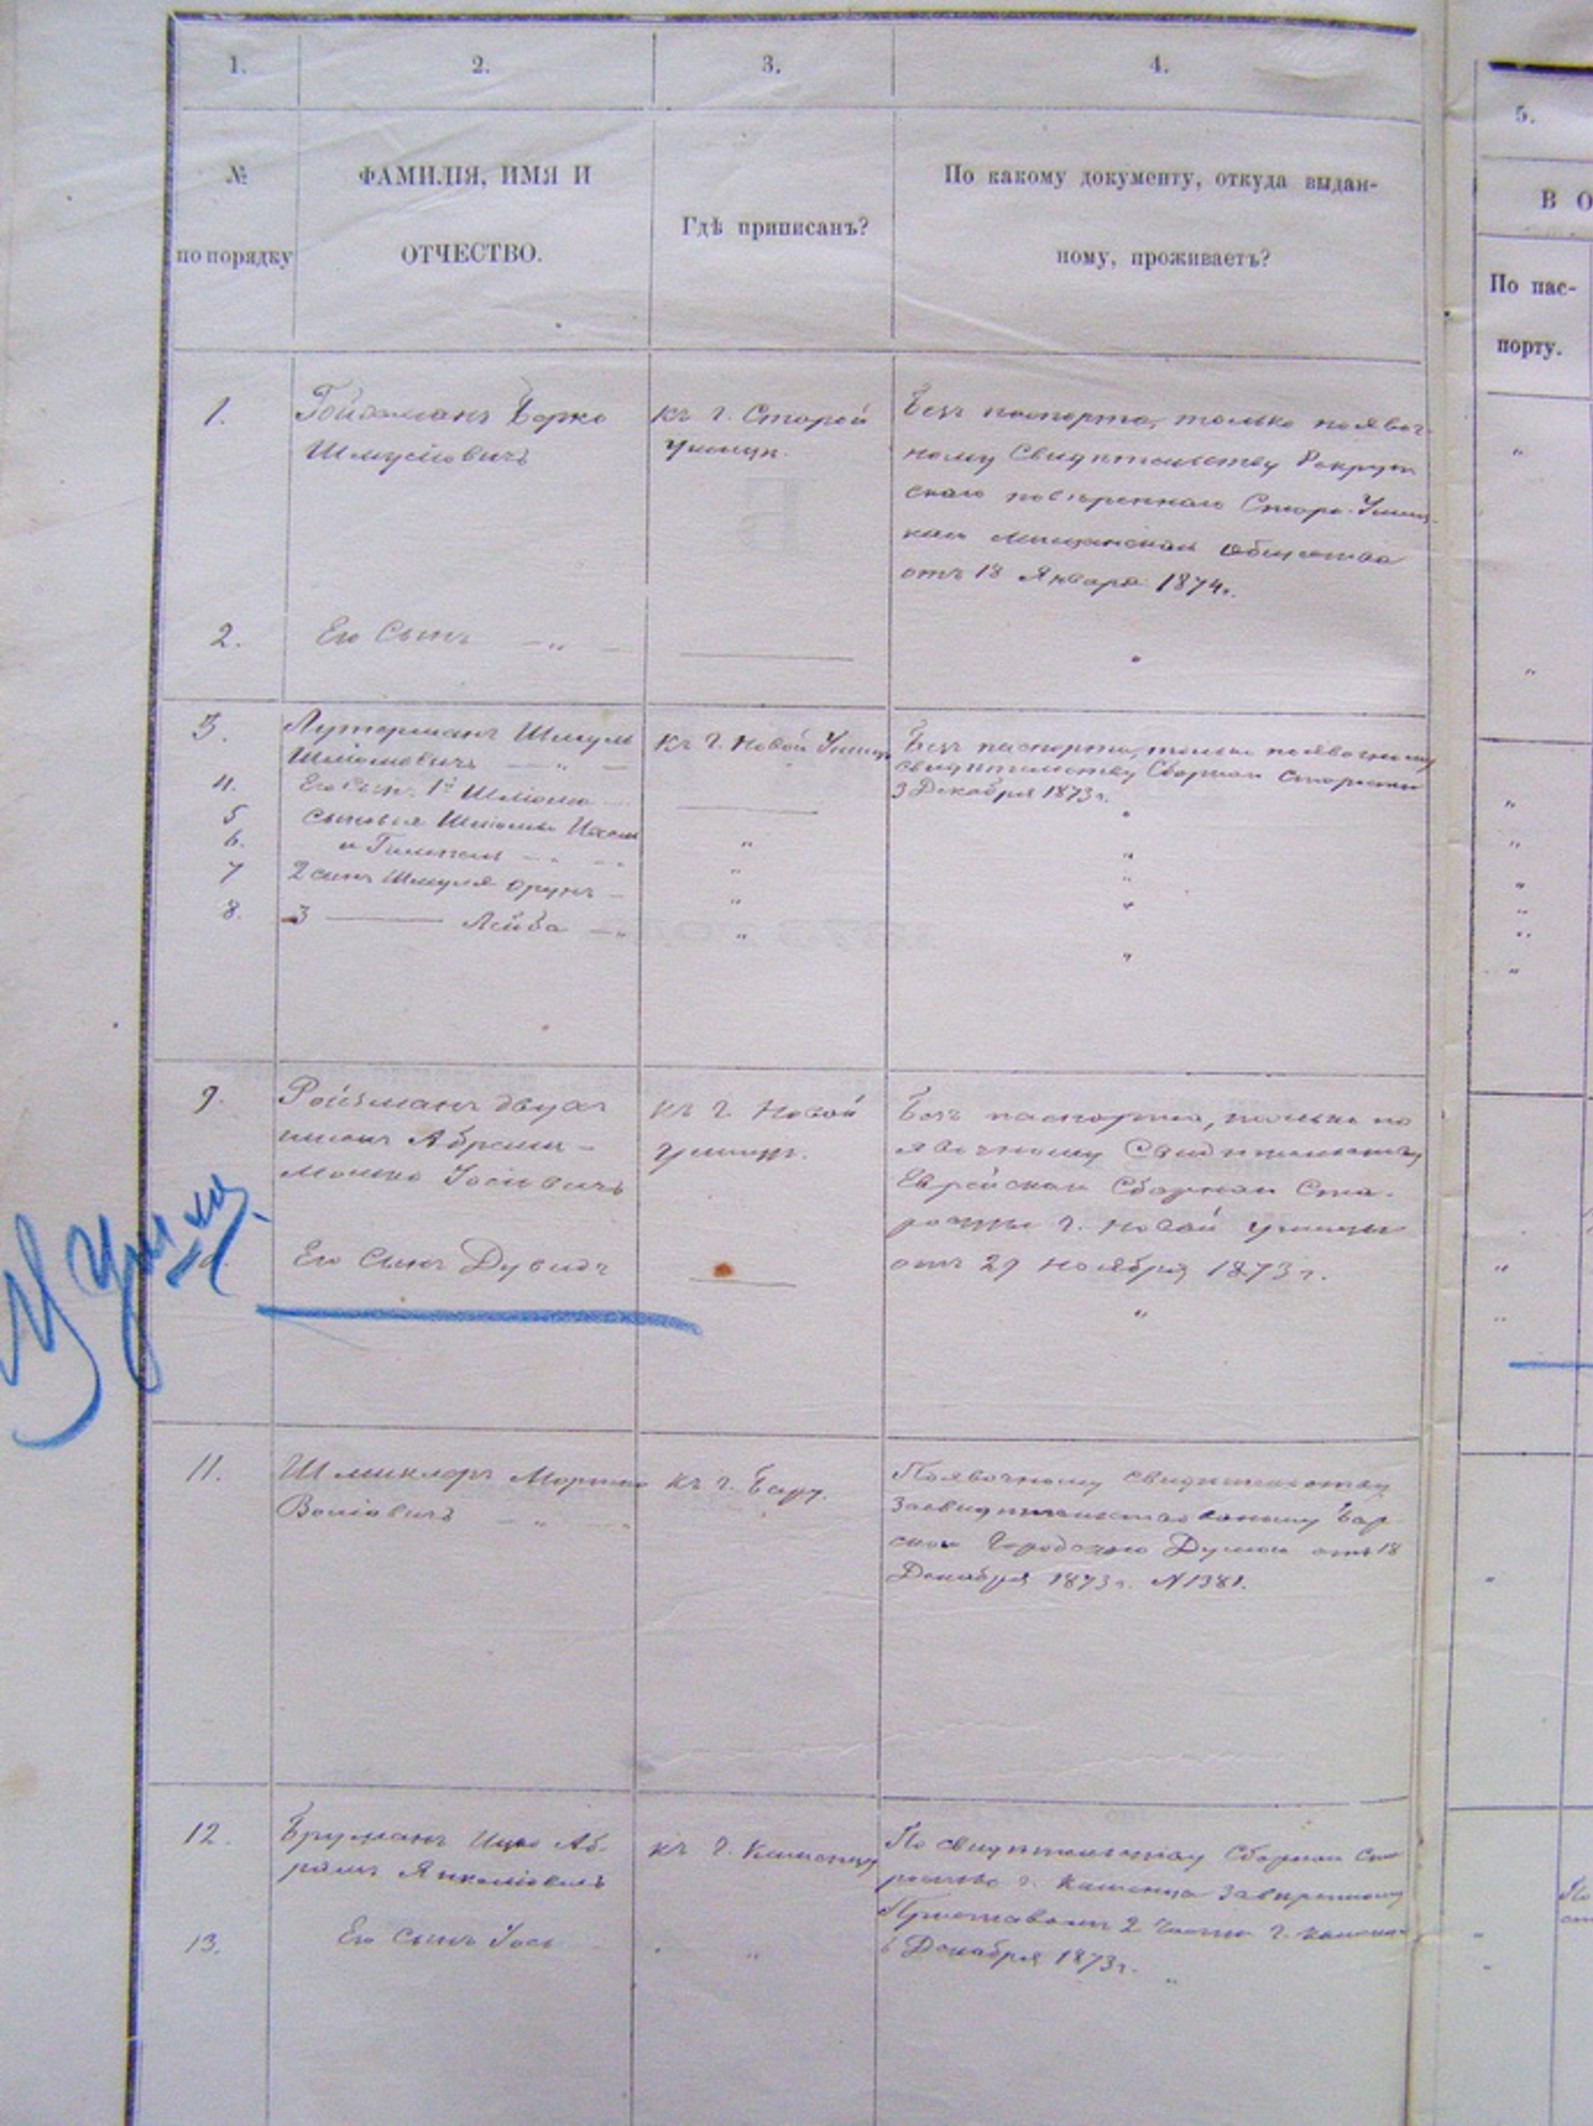 1. 2. 3. 4. 5.
№ по порядку
ФАМИЛІЯ, ИМЯ И
ОТЧЕСТВО.
Гдѣ приписанъ?
По какому документу, откуда выдан-
ному, проживаетъ?
В О
По пас-
порту.
1. Гойзманъ Берко
Шмулiовичъ
къ г. Старой
Ушицѣ.
Безъ паспорта, только по явоч-
ному Свидѣтельству Рекрут
скаго повѣреннаго Старо-Ушиц-
каго мѣщанскаго общества
отъ 18 Января 1874 г.
2. Его Сынъ — " —
3. Лутерманъ Шмуль
Шліомовичъ — " —
къ г. Новой Ушицѣ
Безъ паспорта, только по явочному
свидѣтельству Сборнаго Старосты
3 Декабря 1873 г.
4. Его Сынъ 1й Шліома
5 сыновья Шліомы
6. и Гимпель
7 2 сынъ Шмуля Орунъ —
8. 3 ——— Лейба — "
9. Ройзманъ двухъ
именъ Абрамъ-
Мошко Іосіовичъ
къ г. Новой
Ушицѣ.
Безъ паспорта, только по
явочному Свидѣтельству
Еврейскаго Сборнаго Ста-
росты г. Новой Ушицы
отъ 29 Ноября 1873 г.
Его Сынъ Дувидъ
11. Шмиклеръ
къ г. Бару.
По явочному свидѣтельству
Засвидѣтельствованному Бар
скою Городскою Думою отъ 18
Декабря 1873 г. N 1381.
12. Бруманъ Ицко Аб-
рамъ Янкеліовичъ
къ г. Каменцу
По свидѣтельству Сборнаго Ста
росты г. Каменца Завѣренному
Приставомъ 2 Части г. Каменца
6 Декабря 1873 г.
13. Его Сынъ Іось